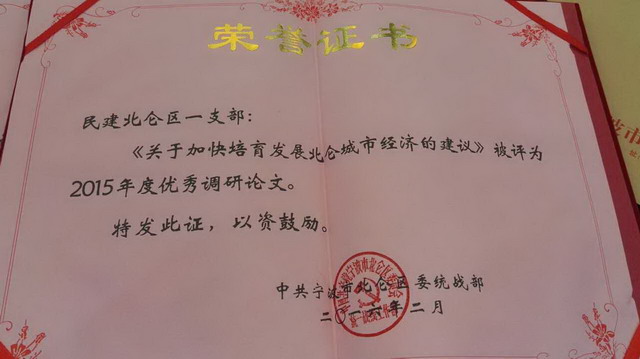 荣誉证书
民建北仑区一支部：
《关于加快培育发展北仑城市经济的建议》被评为
2015年度优秀调研论文。
特发此证，以资鼓励。
中共宁波市北仑区委统战部
二〇一六年二月